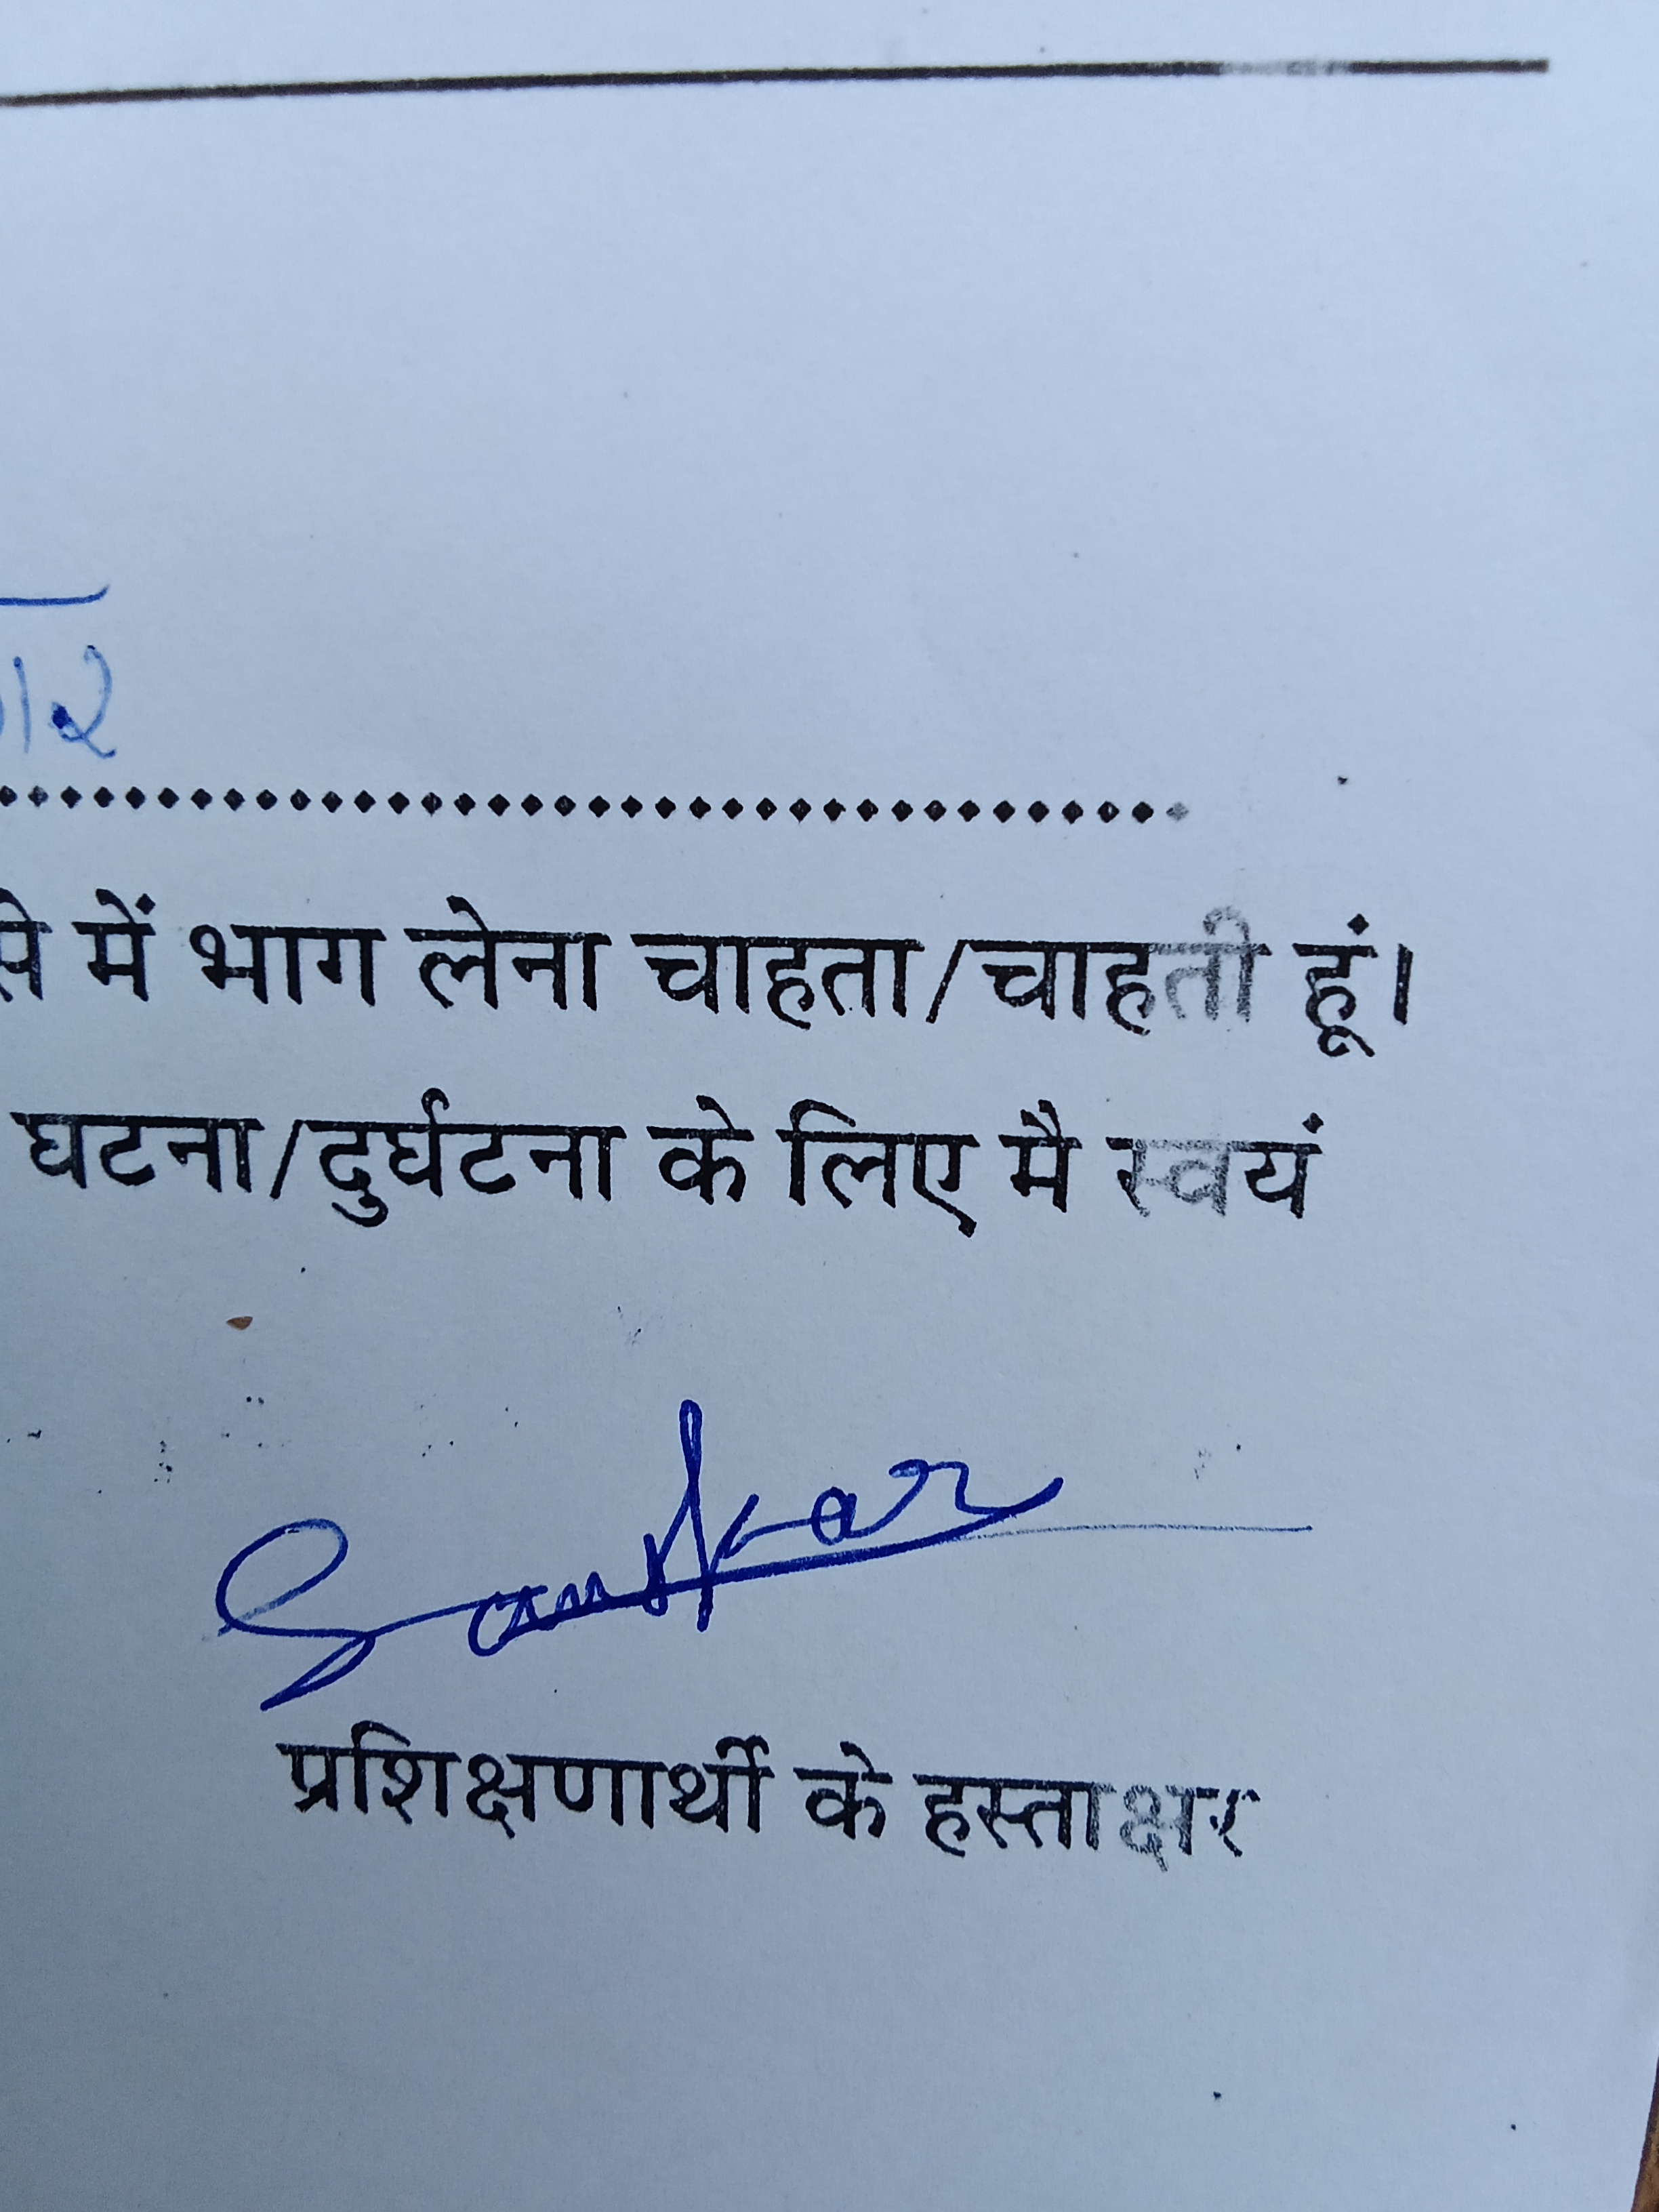 में भाग लेना चाहता/चाहती हूं।
घटना/दुर्घटना के लिए मै स्वयं
प्रशिक्षणार्थी के हस्ताक्षर